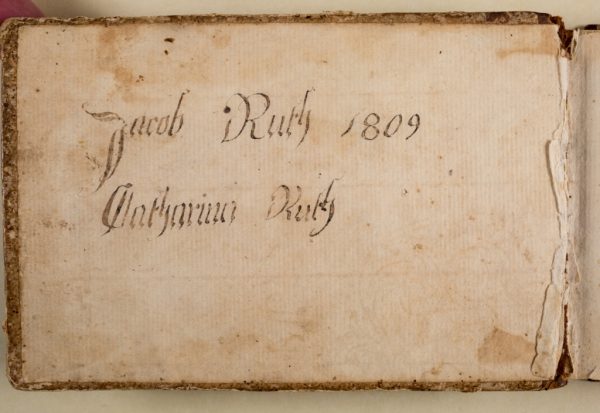 Jacob Ruth 1809
Catharina Ruth